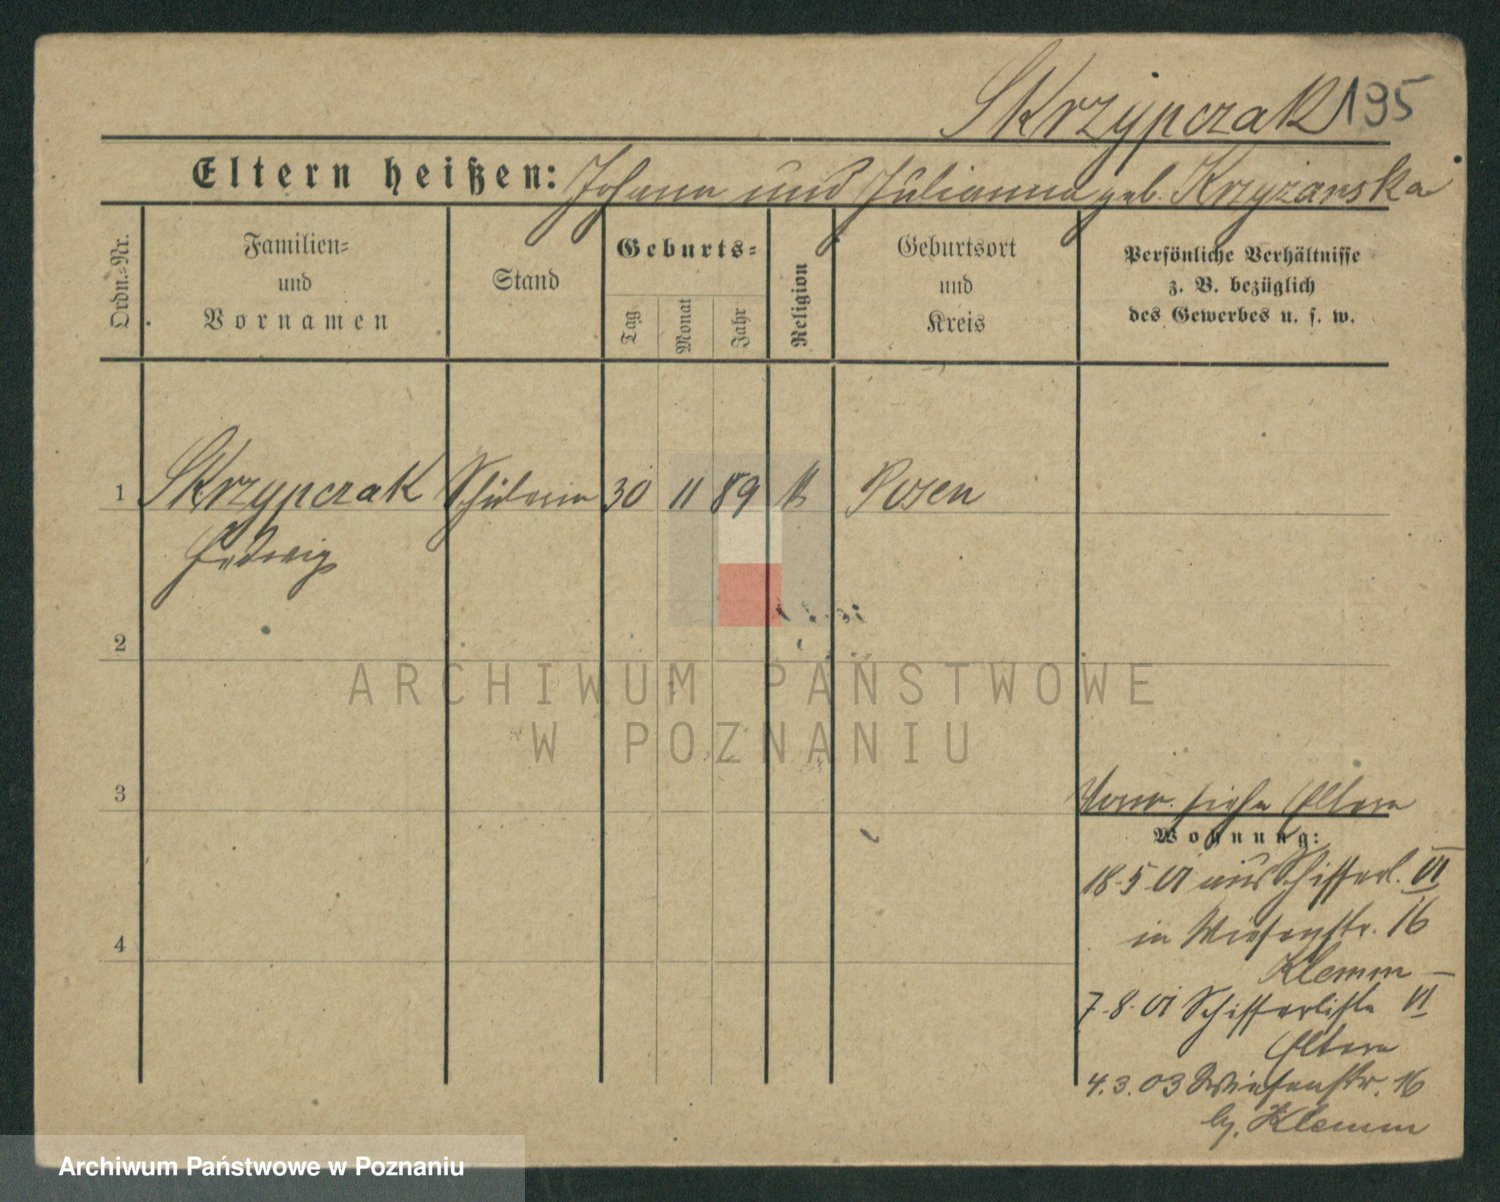 Skrzypczak 195
Eltern heißen: Johann und Julianna geb. Krzyżanska
Ordn.=Nr.
Familien=
und
Vornamen
Stand
Geburts=
Tag
Monat
Jahr
Religion
Geburtsort
und
Kreis
Persönliche Verhältnisse
z. B. bezüglich
des Gewerbes u. s. w.
1 Skrzypczak Schülerin 30 11 89 k Posen
Hedwig
2
ARCHIWUM PAŃSTWOWE
W POZNANIU
3
siehe Eltern
Wohnung:
18.5.01 aus Schifferl. VI
in Wiesenstr. 16
Klemm —
7.8.01 Schifferliste VI
Eltern
4
4.3.03 Wiesenstr. 16
Klemm
Archiwum Państwowe w Poznaniu